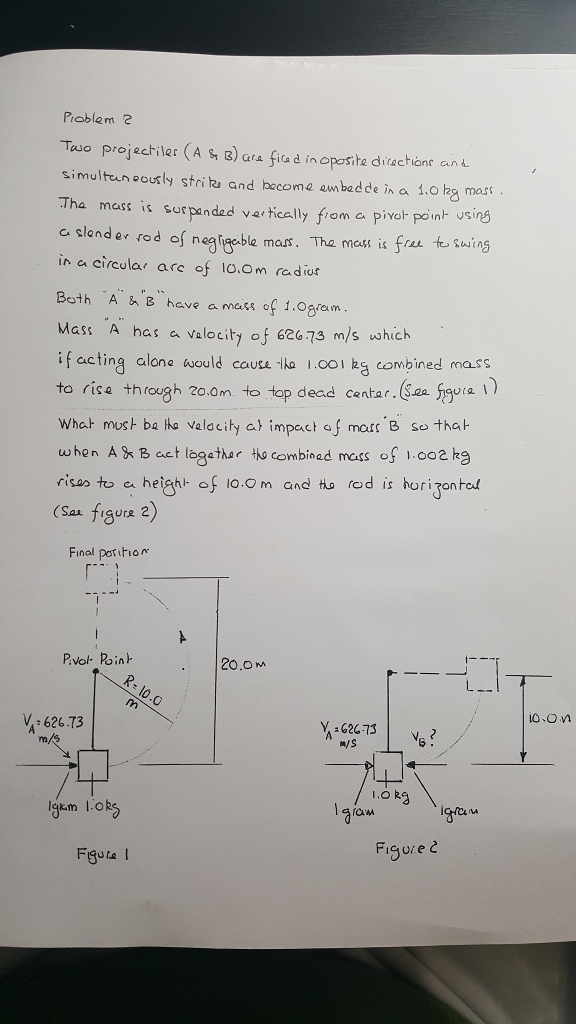 Problem 2
Two projectiles (A & B) are fired in oposite directions and
simultaneously strike and become embedde in a 1.0 kg mass.
The mass is suspended vertically from a pivot point using
a slender rod of negligable mass. The mass is free to swing
in a circular arc of 10.0m radius
Both "A" & "B" have a mass of 1.0gram.
Mass "A" has a velocity of 626.73 m/s which
if acting alone would cause the 1.001 kg combined mass
to rise through 20.0m. to top dead center. (See figure 1)
What must be the velocity at impact of mass "B" so that
when A & B act together the combined mass of 1.002 kg
rises to a height of 10.0m and the rod is horizontal
(See figure 2)
Final position
Pivot Point
R=10.0
m
20.0m
VA=626.73
m/s
1gram 1.0kg
Figure 1
VA=626.73
m/s
VB?
10.0m
1.0kg
1gram
1gram
Figure 2